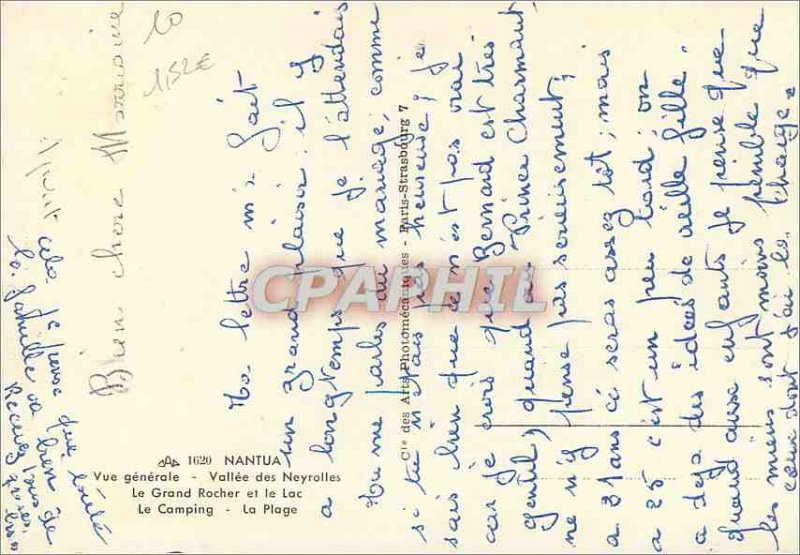 Bien chere Marraine
Ta lettre m'a fait
un grand plaisir ; il y
a longtemps que je l'attendais
Tu me parles du mariage, comme
si tu n'étais pas heureuse ; je
sais bien que ce n'est pas vrai
car je crois que Bernard est très
gentil, quand au Prince Charmant,
je n'y pense pas sérieusement,
a 31 ans ce seras assez tôt ; mais
a 25 c'est un peu tard ; on
a deja des idées de vieille fille.
quand aux enfants je pense que
les miens sont moins pénible que
ceux dont j'ai la charge.
cela je pense que toute
la famille va bien de
Recevez tous
10
1,52€
CPAPHIL
1620 NANTUA
Vue générale - Vallée des Neyrolles
Le Grand Rocher et le Lac
Le Camping - La Plage
Cie des Arts Photomécaniques - Paris-Strasbourg 7